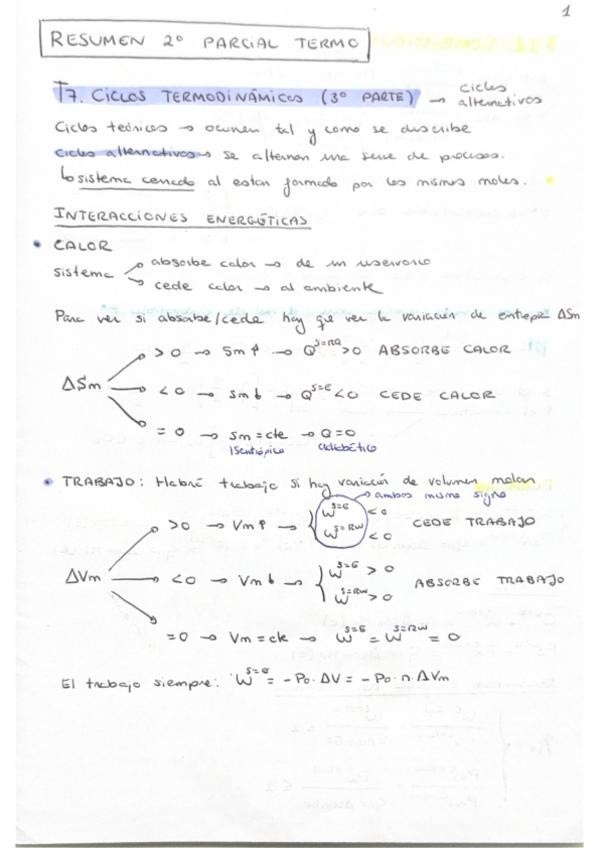 1
RESUMEN 2º PARCIAL TERMO
T7. CICLOS TERMODINÁMICOS (3º PARTE) → ciclos alternativos
Ciclos teóricos → ocurren tal y como se describe
Ciclos alternativos → se alternan una serie de procesos.
↳ sistema cerrado al estar formado por los mismos moles.
INTERACCIONES ENERGÉTICAS
• CALOR
sistema
absorbe calor → de un reservorio
cede calor → al ambiente
Para ver si absorbe/cede hay que ver la variación de entropía ΔSm
ΔSm
> 0 → Sm ↑ → Q^S=RQ > 0 ABSORBE CALOR
< 0 → Sm ↓ → Q^S=E < 0 CEDE CALOR
= 0 → Sm = cte → Q = 0
Isentrópico
• TRABAJO: Habrá trabajo si hay variación de volumen molar
→ ambos mismo signo
ΔVm
> 0 → Vm ↑ → { W^S=E < 0
W^S=RW < 0
CEDE TRABAJO
< 0 → Vm ↓ → { W^S=E > 0
W^S=RW > 0
ABSORBE TRABAJO
= 0 → Vm = cte → W^S=E = W^S=RW = 0
El trabajo siempre: W^S=E = - Po · ΔV = - Po · n · ΔVm